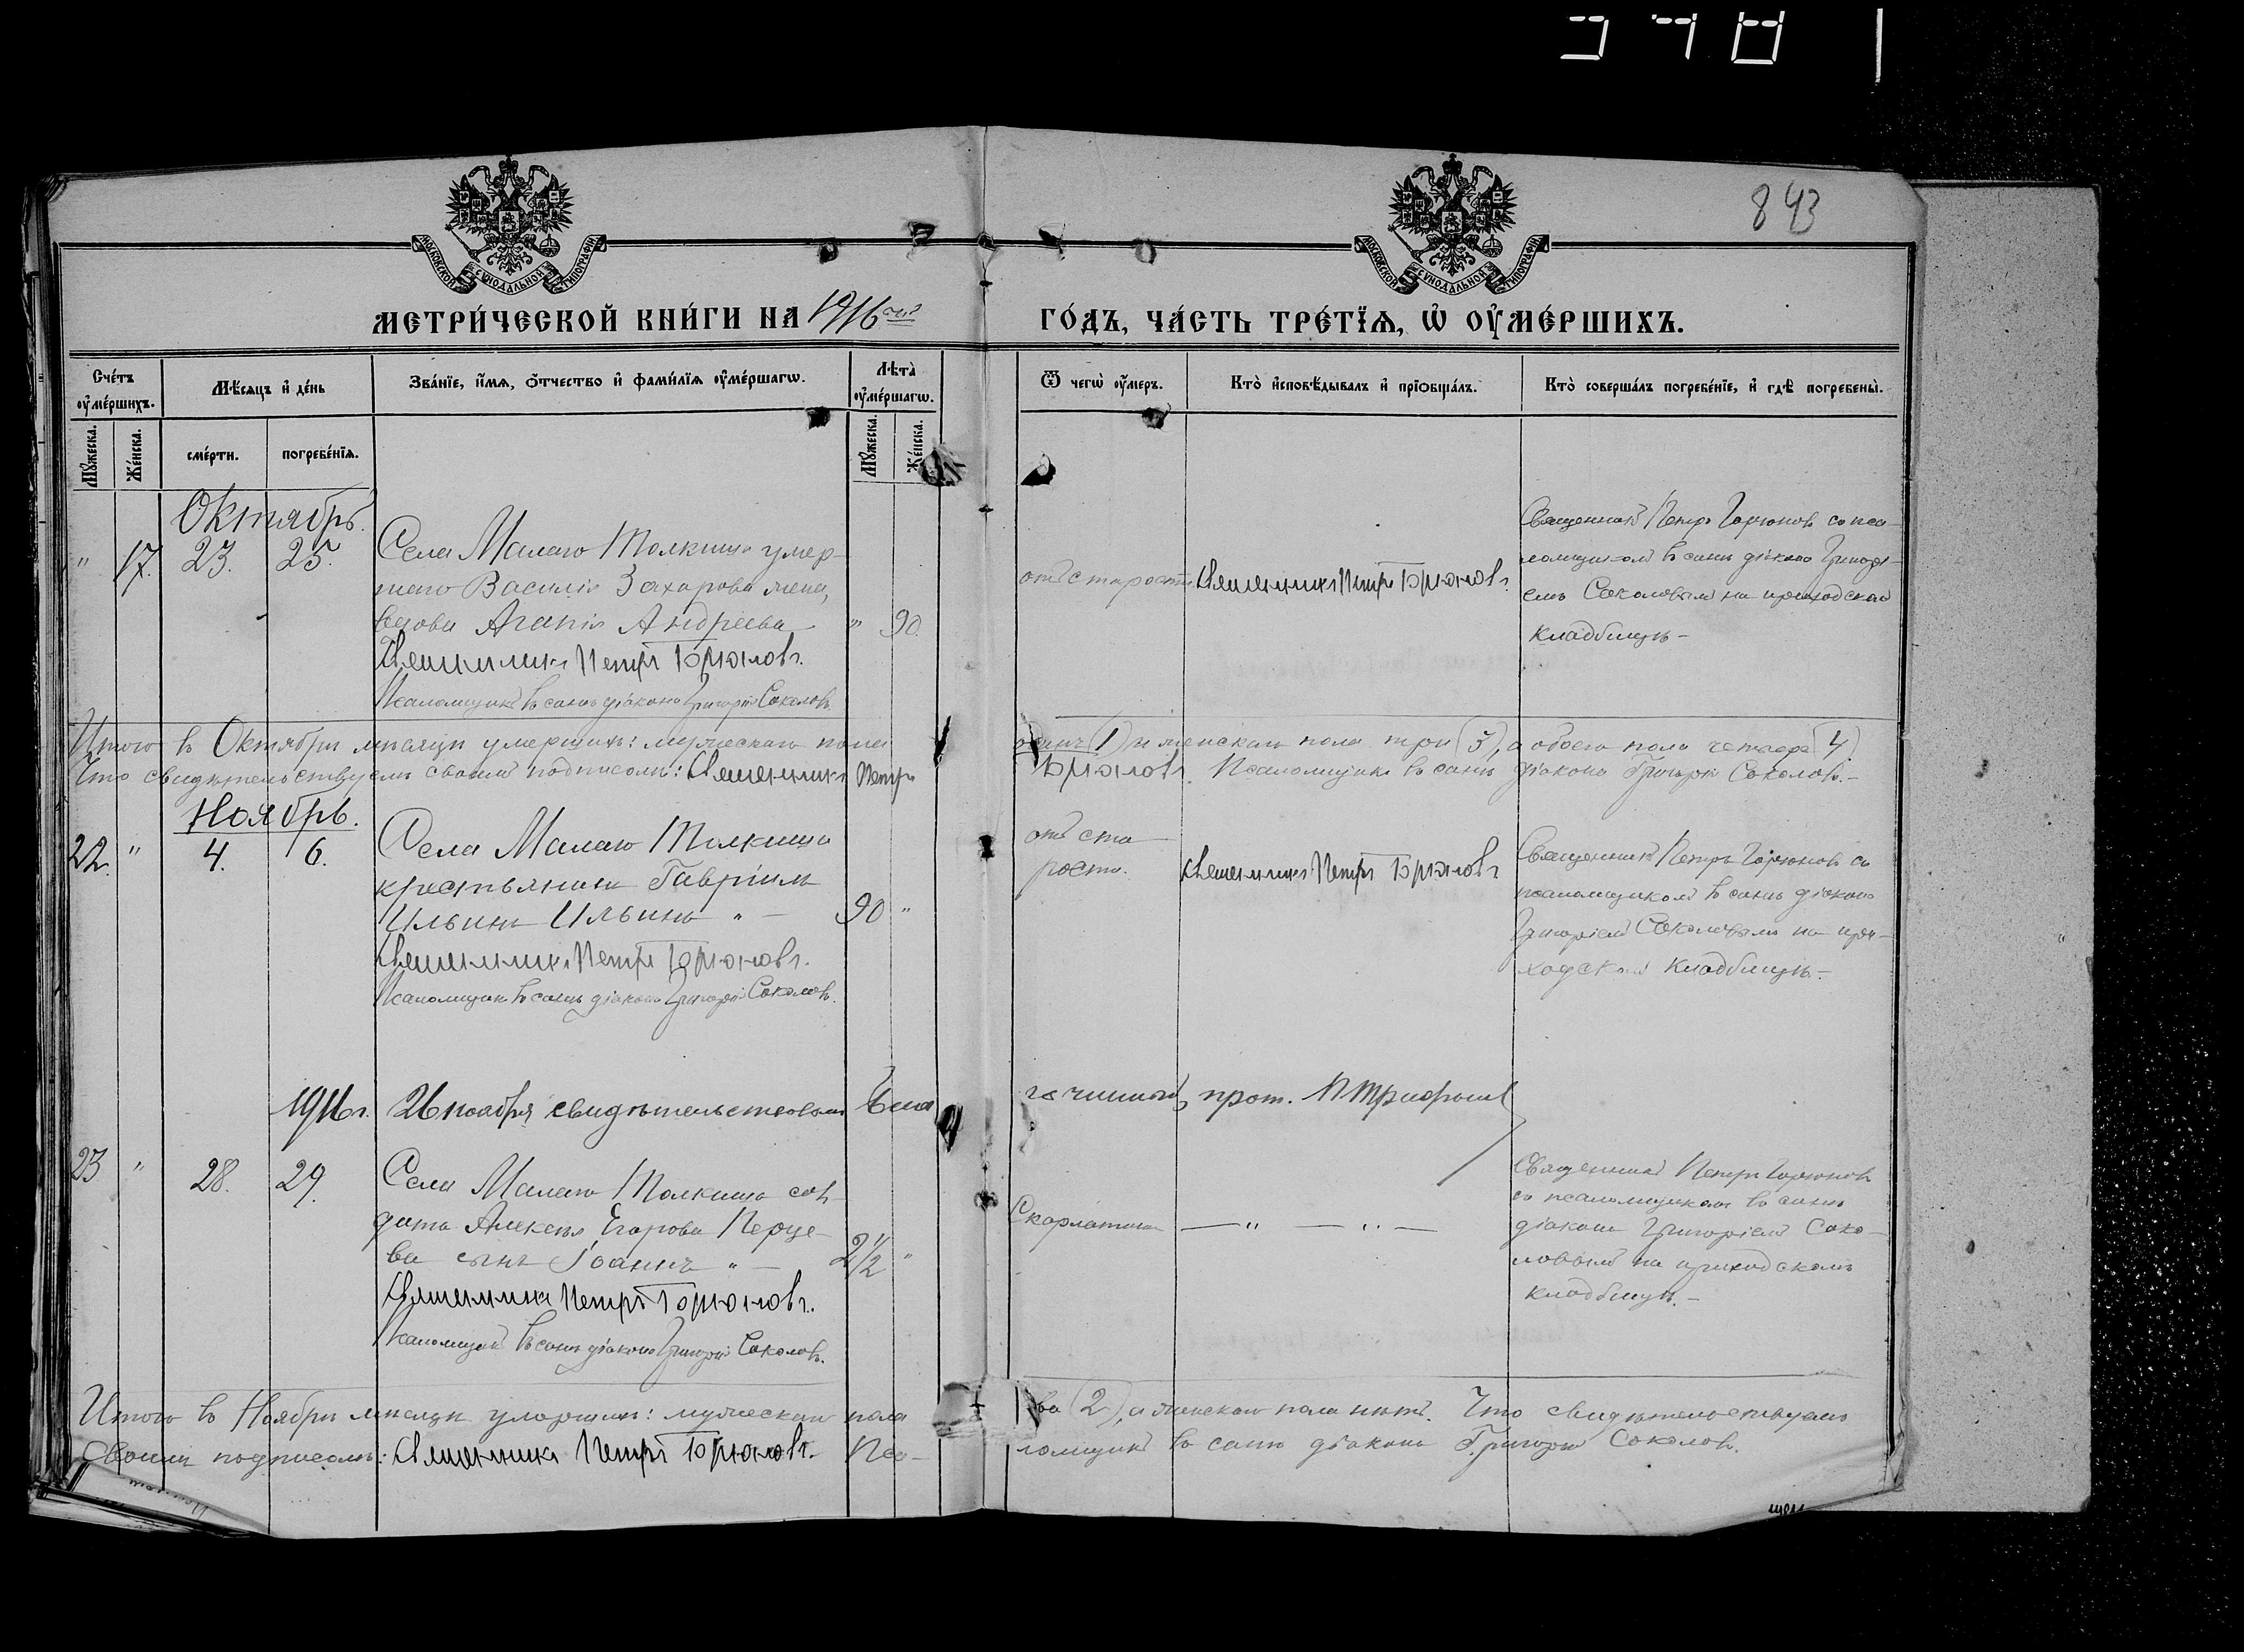 843
МОСКОВСКОЙ СУНОДАЛЬНОЙ ТИПОГРАФІИ
МОСКОВСКОЙ СУНОДАЛЬНОЙ ТИПОГРАФІИ
МЕТРИ́ЧЕСКОЙ КНИ́ГИ НА 1916ый
ГО́ДЪ, ЧА́СТЬ ТРЕ́ТЇѦ, Ѡ҆ ОУ҆МЕ́РШИХЪ.
Сче́тъ оу҆ме́ршихъ.
Мѣ́сяцъ и҆ де́нь
Зва́нїе, и҆́мѧ, ѻ҆́тчество и҆ фами́лїѧ оу҆ме́ршагѡ.
Лѣта̀ оу҆ме́ршагѡ.
Ѿ чегѡ̀ оу҆́меръ.
Кто̀ и҆сповѣ́дывалъ и҆ прїѡбща́лъ.
Кто̀ соверша́лъ погребе́нїе, и҆ гдѣ̀ погребены̀.
Мꙋ́жеска.
Же́нска.
сме́рти.
погребе́нїѧ.
Мꙋ́жеска.
Же́нска.
Октябрь.
" 17. 23. 25.
Села Малаго Толкиша умер-
шаго Василія Захарова жена,
вдова Агапія Андреева " 90.
Священникъ Петръ Горюновъ.
Псаломщикъ въ санѣ діакона Григорій Соколовъ.
отъ старости
Священникъ Петръ Горюновъ.
Священникъ Петръ Горюновъ со пса-
ломщикомъ въ санѣ діакона Григорі-
емъ Соколовымъ на приходскомъ
кладбищѣ –
Итого въ Октябрѣ мѣсяцѣ умершихъ: мужескаго пола
одинъ (1) и женскаго пола три (3), а обоего пола четверо (4)
Что свидѣтельствуемъ своимъ подписомъ: Священникъ Петръ
Горюновъ. Псаломщикъ въ санѣ діакона Григорій Соколовъ. –
Ноябрь.
22. " 4. 6.
Села Малаго Толкиша
крестьянинъ Гавріилъ
Ильинъ Ильинъ " – 90 "
Священникъ Петръ Горюновъ.
Псаломщикъ въ санѣ діакона Григорій Соколовъ.
отъ ста-
рости.
Священникъ Петръ Горюновъ
Священникъ Петръ Горюновъ со
псаломщикомъ въ санѣ діакона
Григоріемъ Соколовымъ на при-
ходскомъ кладбищѣ. –
1916 г. 26 ноября свидѣтельствовалъ Благочинный, прот. П Трифонов
23 " 28. 29.
Села Малаго Толкиша сол-
дата Алексѣя Егорова Перце-
ва сынъ Іоаннъ " – 2 1/2 "
Священникъ Петръ Горюновъ.
Псаломщикъ въ санѣ діакона Григорій Соколовъ.
Скарлатина
— " — " —
Священникъ Петръ Горюновъ
со псаломщикомъ въ санѣ
діакона Григоріемъ Соко-
ловымъ на приходскомъ
кладбищѣ. –
Итого въ Ноябрѣ мѣсяцѣ умершихъ: мужескаго пола
два (2), а женскаго пола нѣтъ. Что свидѣтельствуемъ
своимъ подписомъ: Священникъ Петръ Горюновъ. Пса-
ломщикъ въ санѣ діакона Григорій Соколовъ.